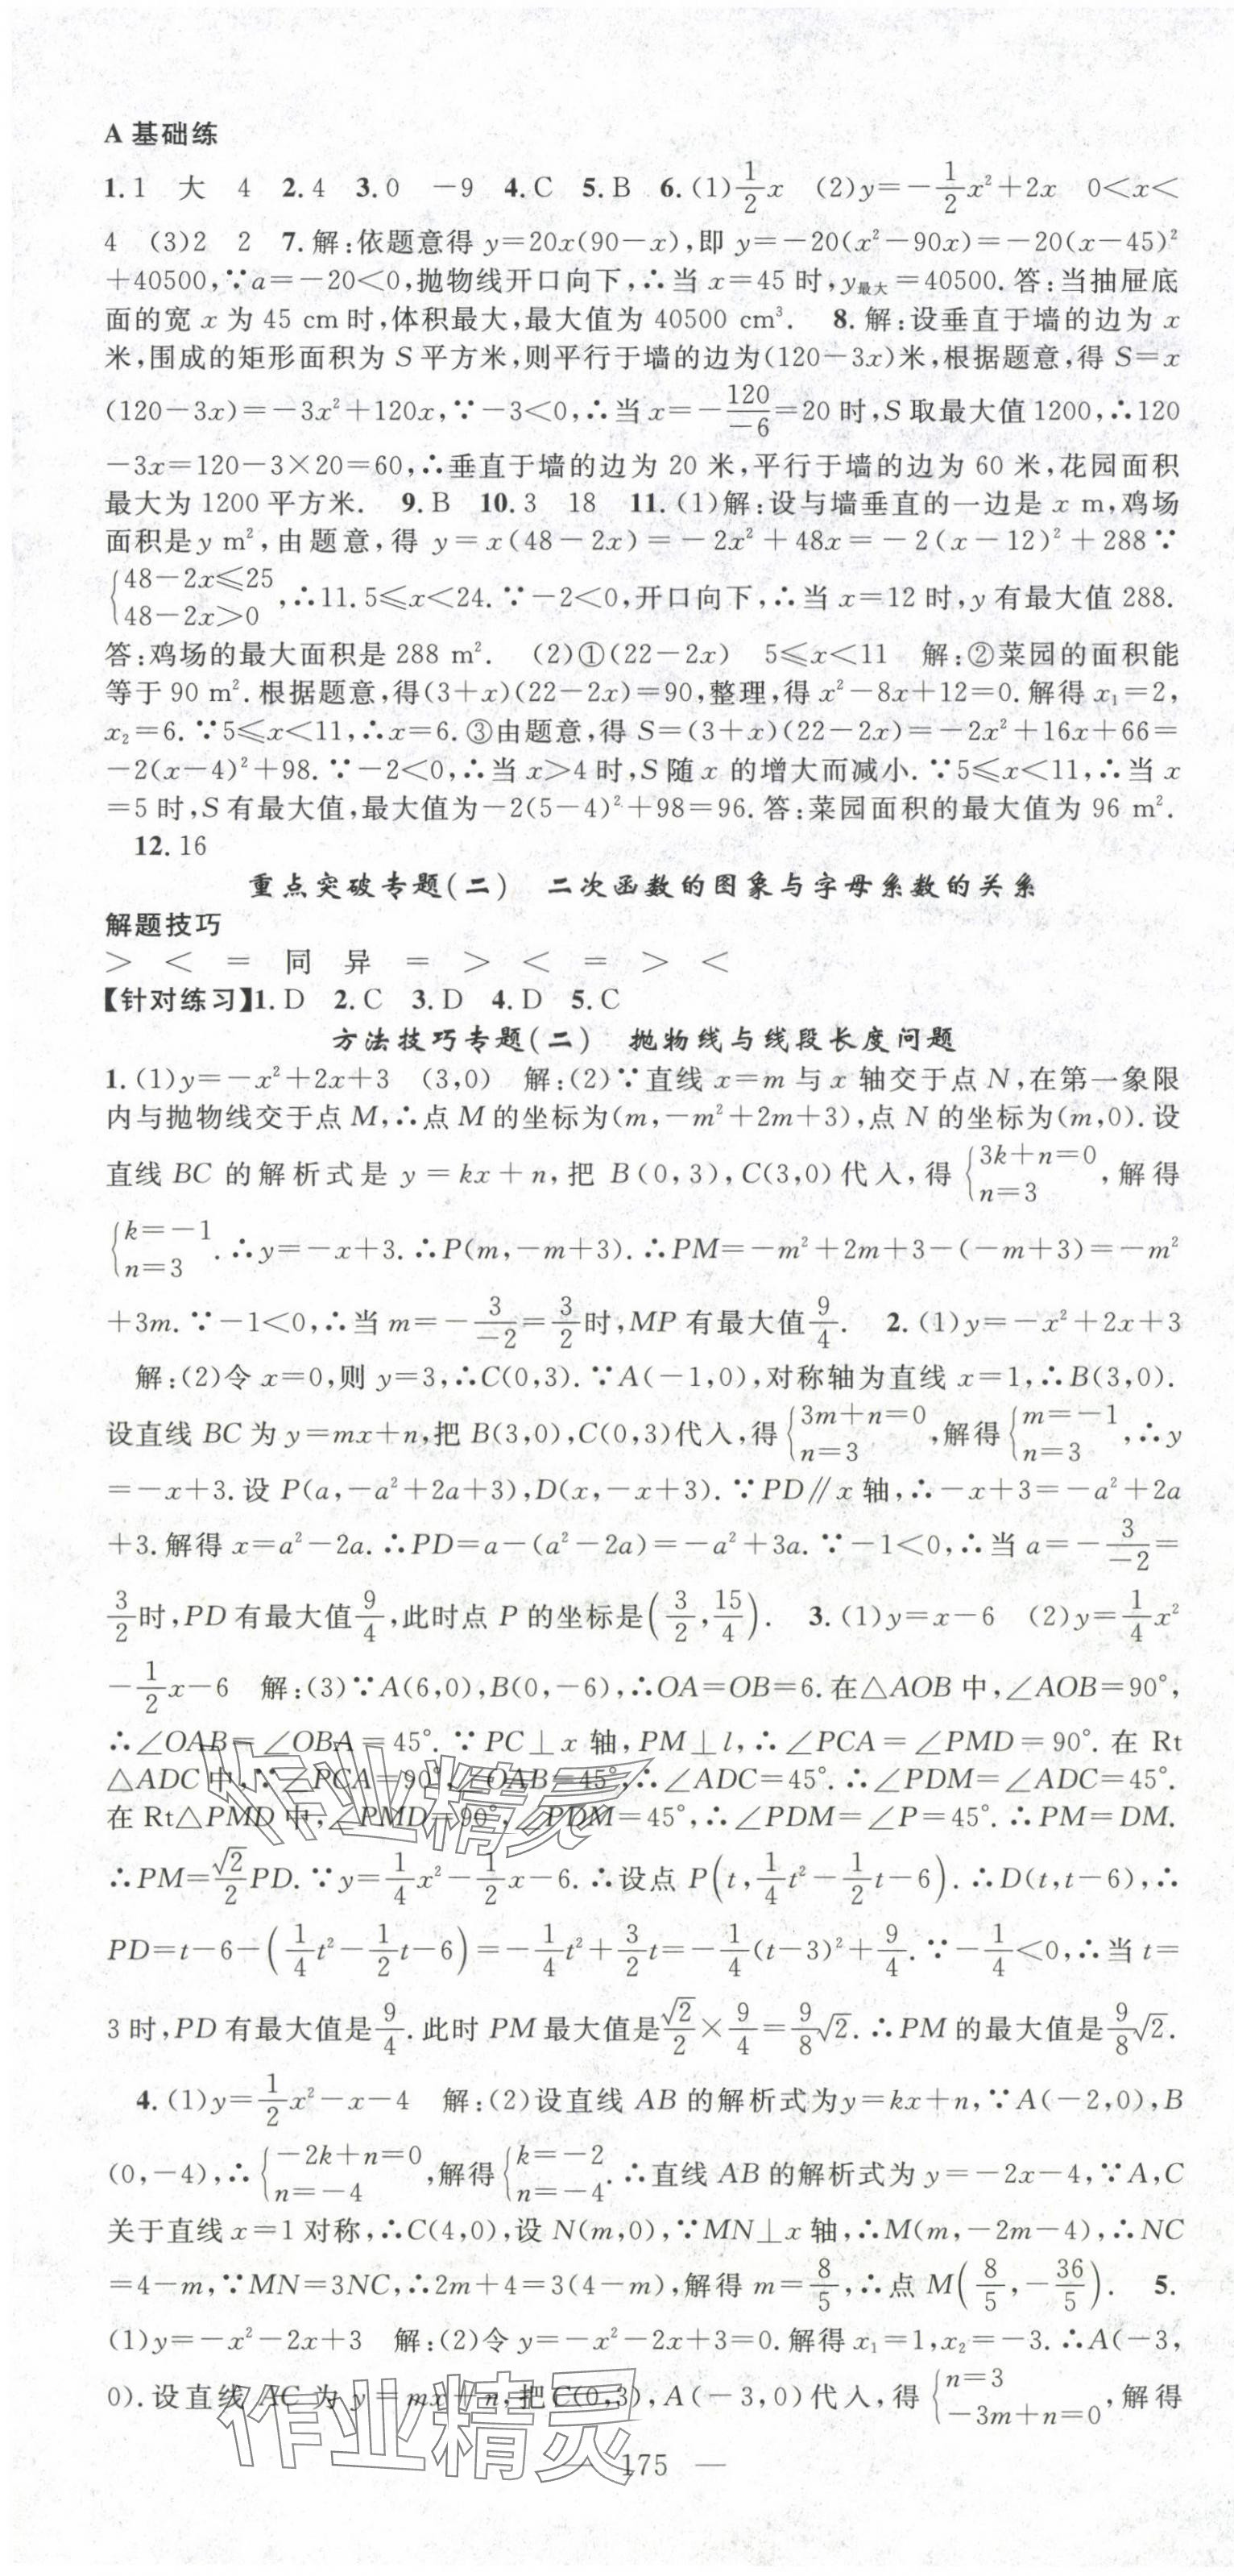 A 基础练
1. 1　大　4　2. 4　3. 0　－9　4. C　5. B　6. (1) 1/2 x　(2)y=－1/2 x²+2x　0<x<
4　(3)2　2　7. 解:依题意得 y=20x(90－x),即 y=－20(x²－90x)=－20(x－45)²
+40500,∵a=－20<0,抛物线开口向下,∴当 x=45 时,y最大=40500. 答:当抽屉底
面的宽 x 为 45 cm 时,体积最大,最大值为 40500 cm³.　8. 解:设垂直于墙的边为 x
米,围成的矩形面积为 S 平方米,则平行于墙的边为(120－3x)米,根据题意,得 S=x
(120－3x)=－3x²+120x,∵－3<0,∴当 x=－120/－6=20 时,S 取最大值 1200,∴120
－3x=120－3×20=60,∴垂直于墙的边为 20 米,平行于墙的边为 60 米,花园面积
最大为 1200 平方米.　9. B　10. 3　18　11. (1)解:设与墙垂直的一边是 x m,鸡场
面积是 y m²,由题意,得 y=x(48－2x)=－2x²+48x=－2(x－12)²+288∵
{48－2x⩽25
48－2x>0 ,∴11. 5⩽x<24. ∵－2<0,开口向下,∴当 x=12 时,y 有最大值 288.
答:鸡场的最大面积是 288 m².　(2)①(22－2x)　5⩽x<11　解:②菜园的面积能
等于 90 m². 根据题意,得(3+x)(22－2x)=90,整理,得 x²－8x+12=0. 解得 x₁=2,
x₂=6. ∵5⩽x<11,∴x=6. ③由题意,得 S=(3+x)(22－2x)=－2x²+16x+66=
－2(x－4)²+98. ∵－2<0,∴当 x>4 时,S 随 x 的增大而减小. ∵5⩽x<11,∴当 x
=5 时,S 有最大值,最大值为－2(5－4)²+98=96. 答:菜园面积的最大值为 96 m².
12. 16
重点突破专题(二)　二次函数的图象与字母系数的关系
解题技巧
>　<　=　同　异　=　>　<　=　>　<
【针对练习】1. D　2. C　3. D　4. D　5. C
方法技巧专题(二)　抛物线与线段长度问题
1. (1)y=－x²+2x+3　(3,0)　解:(2)∵直线 x=m 与 x 轴交于点 N,在第一象限
内与抛物线交于点 M,∴点 M 的坐标为(m,－m²+2m+3),点 N 的坐标为(m,0). 设
直线 BC 的解析式是 y=kx+n,把 B(0,3),C(3,0)代入,得 {3k+n=0
n=3 ,解得
{k=－1
n=3 . ∴y=－x+3. ∴P(m,－m+3). ∴PM=－m²+2m+3－(－m+3)=－m²
+3m. ∵－1<0,∴当 m=－3/－2=3/2 时,MP 有最大值 9/4.　2. (1)y=－x²+2x+3
解:(2)令 x=0,则 y=3,∴C(0,3). ∵A(－1,0),对称轴为直线 x=1,∴B(3,0).
设直线 BC 为 y=mx+n,把 B(3,0),C(0,3)代入,得 {3m+n=0
n=3 ,解得 {m=－1
n=3 ,∴y
=－x+3. 设 P(a,－a²+2a+3),D(x,－x+3). ∵PD∥x 轴,∴－x+3=－a²+2a
+3. 解得 x=a²－2a. ∴PD=a－(a²－2a)=－a²+3a. ∵－1<0,∴当 a=－3/－2=
3/2 时,PD 有最大值 9/4,此时点 P 的坐标是(3/2,15/4).　3. (1)y=x－6　(2)y=1/4 x²
－1/2 x－6　解:(3)∵A(6,0),B(0,－6),∴OA=OB=6. 在△AOB 中,∠AOB=90°,
∴∠OAB=∠OBA=45°. ∵PC⊥x 轴,PM⊥l,∴∠PCA=∠PMD=90°. 在 Rt
△ADC 中,∵∠PCA=90°,∠OAB=45°,∴∠ADC=45°. ∴∠PDM=∠ADC=45°.
在 Rt△PMD 中,∠PMD=90°,∠PDM=45°,∴∠PDM=∠P=45°. ∴PM=DM.
∴PM=√2/2 PD. ∵y=1/4 x²－1/2 x－6. ∴设点 P(t,1/4 t²－1/2 t－6). ∴D(t,t－6),∴
PD=t－6－(1/4 t²－1/2 t－6)=－1/4 t²+3/2 t=－1/4 (t－3)²+9/4. ∵－1/4<0,∴当 t=
3 时,PD 有最大值是 9/4. 此时 PM 最大值是 √2/2×9/4=9/8√2. ∴PM 的最大值是 9/8√2.
4. (1)y=1/2 x²－x－4　解:(2)设直线 AB 的解析式为 y=kx+n,∵A(－2,0),B
(0,－4),∴{－2k+n=0
n=－4 ,解得 {k=－2
n=－4 . ∴直线 AB 的解析式为 y=－2x－4,∵A,C
关于直线 x=1 对称,∴C(4,0),设 N(m,0),∵MN⊥x 轴,∴M(m,－2m－4),∴NC
=4－m,∵MN=3NC,∴2m+4=3(4－m),解得 m=8/5,∴点 M(8/5,－36/5).　5.
(1)y=－x²－2x+3　解:(2)令 y=－x²－2x+3=0. 解得 x₁=1,x₂=－3. ∴A(－3,
0). 设直线 AC 为 y=mx+n,把 C(0,3),A(－3,0)代入,得 {n=3
－3m+n=0 ,解得
175 —
作业精灵
作业精灵